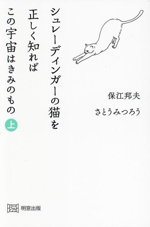 シュレーディンガーの猫を
正しく知れば
この宇宙はきみのもの 上
保江邦夫
さとうみつろう
明窓出版